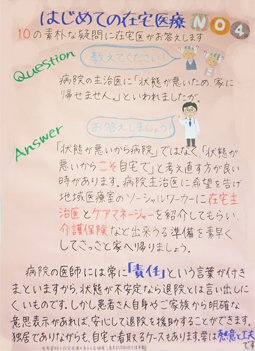 はじめての在宅医療 NO4
10の素朴な疑問に在宅医がお答えします
Question
教えてください!
病院の主治医に「状態が悪いため、家に
帰せません。」といわれましたが。
Answer
お答えしましょう!
「状態が悪いから病院」ではなく、「状態が
悪いからこそ自宅で」と考え直す方が良い
時があります。病院主治医に希望を告げ
地域医療室のソーシャルワーカーに在宅主
治医とケアマネージャーを紹介してもらい、
介護保険など出来うる準備を素早く
してさっさと家へ帰りましょう。
病院の医師には常に「責任」という言葉が付きま
といますから状態が不安定なら退院とは言い出しに
くいものです。しかし患者さん自身やご家族から明確な
意思表示があれば、安心して退院を援助することができます。
独居でありながらも、自宅で看取るケースもあります。要は知恵と工夫
です。